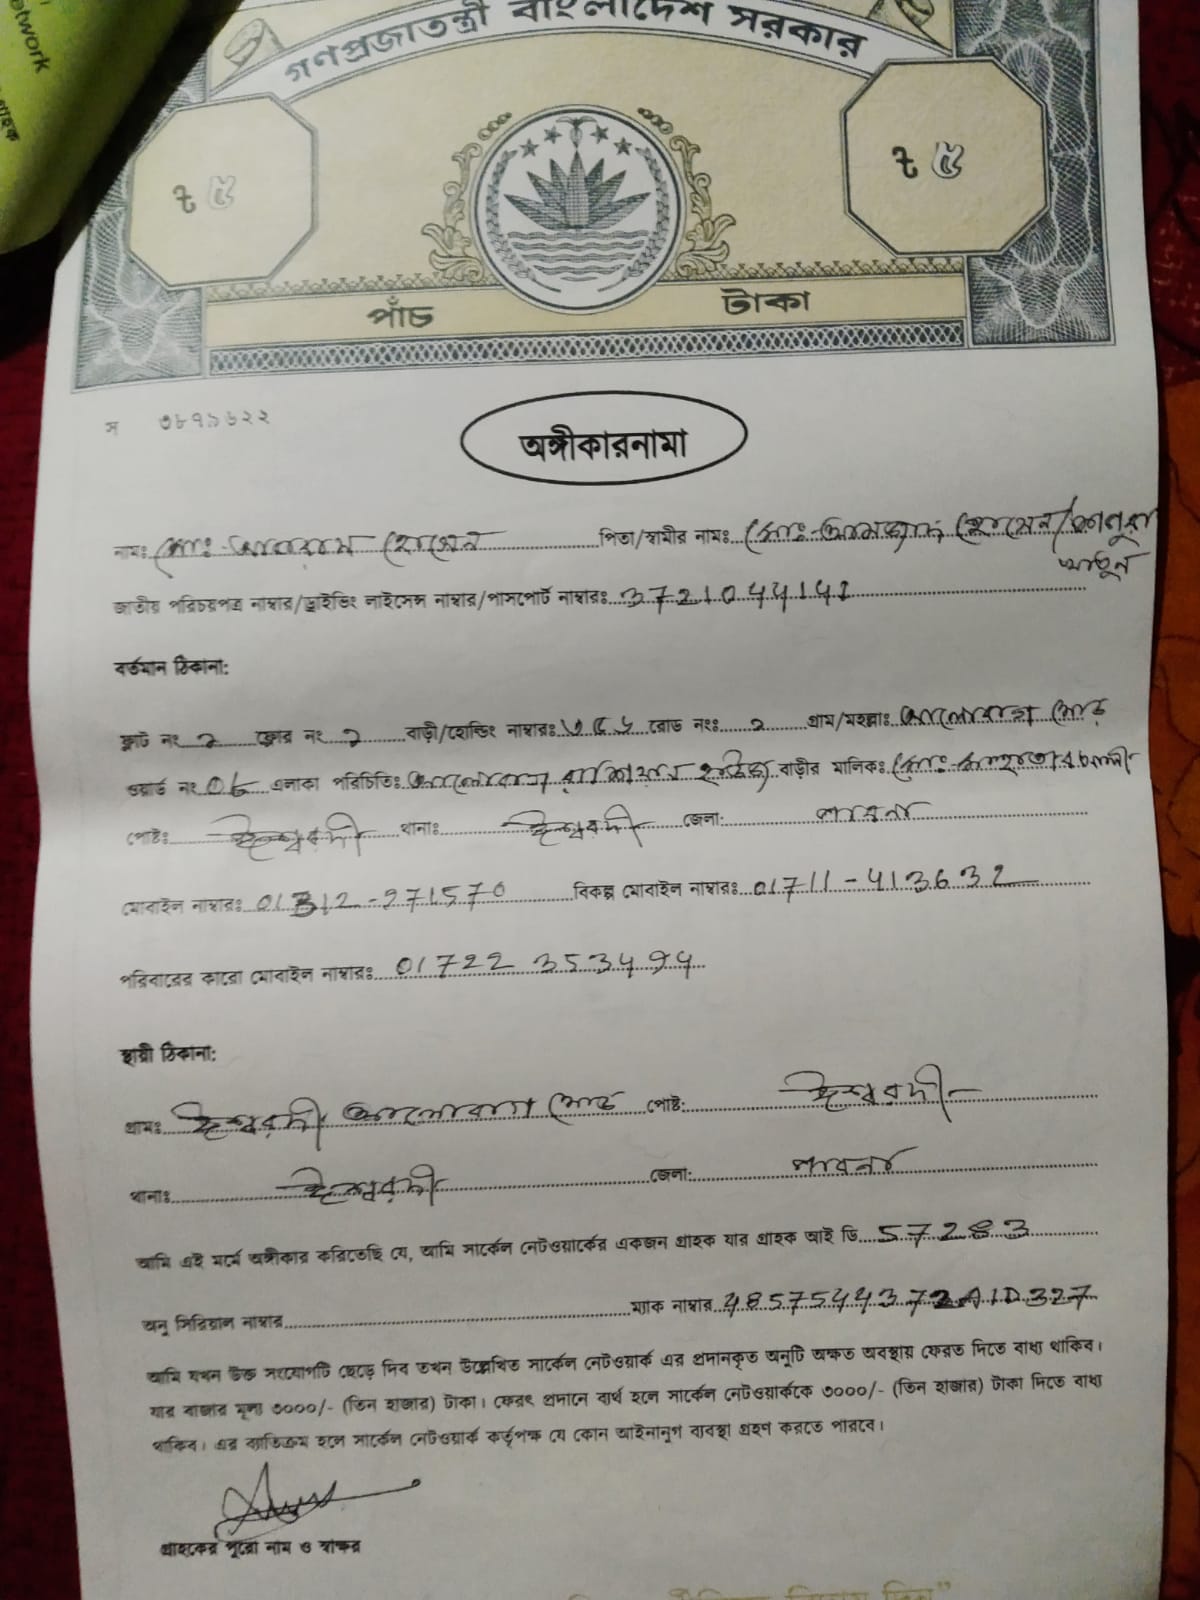 etwork
গ্রাহক
গণপ্রজাতন্ত্রী বাংলাদেশ সরকার
৳ ৫
৳ ৫
পাঁচ টাকা
স ৩৮৭৯৬২২
অঙ্গীকারনামা
নামঃ মোঃ হোসেন পিতা/স্বামীর নামঃ মোঃ আমজাদ হোসেন/
খাতুন
জাতীয় পরিচয়পত্র নাম্বার/ড্রাইভিং লাইসেন্স নাম্বার/পাসপোর্ট নাম্বারঃ 3721044141
বর্তমান ঠিকানা:
ফ্লাট নং 2 ফ্লোর নং 2 বাড়ী/হোল্ডিং নাম্বারঃ রোড নংঃ 2 গ্রাম/মহল্লাঃ আলোবাগ মোড়
ওয়ার্ড নং এলাকা পরিচিতিঃ আলোবাগ বাড়ীর মালিক: মোঃ
পোষ্ট: ঈশ্বরদী থানাঃ ঈশ্বরদী জেলা: পাবনা
মোবাইল নাম্বারঃ 01312-271570 বিকল্প মোবাইল নাম্বারঃ 01711-413632
পরিবারের কারো মোবাইল নাম্বারঃ 01722 353494
স্থায়ী ঠিকানা:
গ্রামঃ ঈশ্বরদী আলোবাগ মোড় পোষ্ট: ঈশ্বরদী
থানাঃ ঈশ্বরদী জেলা: পাবনা
আমি এই মর্মে অঙ্গীকার করিতেছি যে, আমি সার্কেল নেটওয়ার্কের একজন গ্রাহক যার গ্রাহক আই ডি 57283
অনু সিরিয়াল নাম্বার ম্যাক নাম্বার 4857544372A1D327
আমি যখন উক্ত সংযোগটি ছেড়ে দিব তখন উল্লেখিত সার্কেল নেটওয়ার্ক এর প্রদানকৃত অনুটি অক্ষত অবস্থায় ফেরত দিতে বাধ্য থাকিব।
যার বাজার মূল্য ৩০০০/- (তিন হাজার) টাকা। ফেরৎ প্রদানে ব্যর্থ হলে সার্কেল নেটওয়ার্ককে ৩০০০/- (তিন হাজার) টাকা দিতে বাধ্য
থাকিব। এর ব্যতিক্রম হলে সার্কেল নেটওয়ার্ক কর্তৃপক্ষ যে কোন আইনানুগ ব্যবস্থা গ্রহণ করতে পারবে।
গ্রাহকের পুরো নাম ও স্বাক্ষর